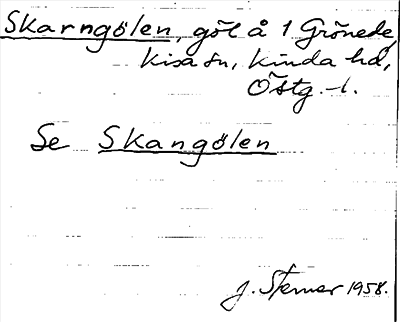 Skarngölen, göl å 1 Grönede,
Kisa sn, Kinda hd,
Östg. l.
Se Skangölen
J. Sterner 1958.